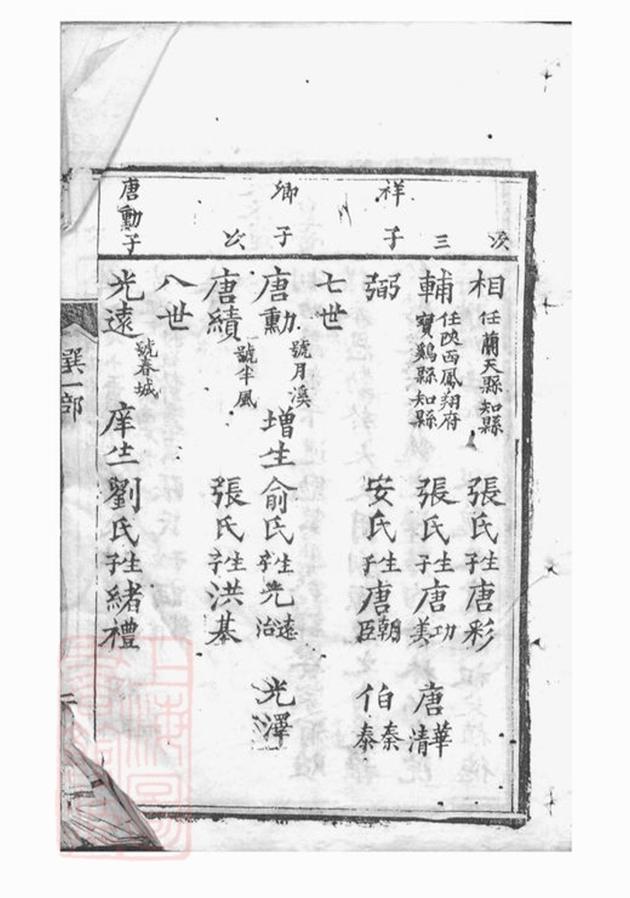 次 相 任蘭天縣知縣 張氏生子唐彩
三 輔 任陝西鳳翔府寶鷄縣知縣 張氏生子唐功美 唐華清
祥子 弼 安氏生子唐朝臣 伯秦泰
七世
卿子 唐勳 號月溪 增生 俞氏生子光遠治 光澤
次 唐績 號半風 張氏生子洪基
八世
唐勳子 光遠 號春城 庠生 劉氏生子緒禮